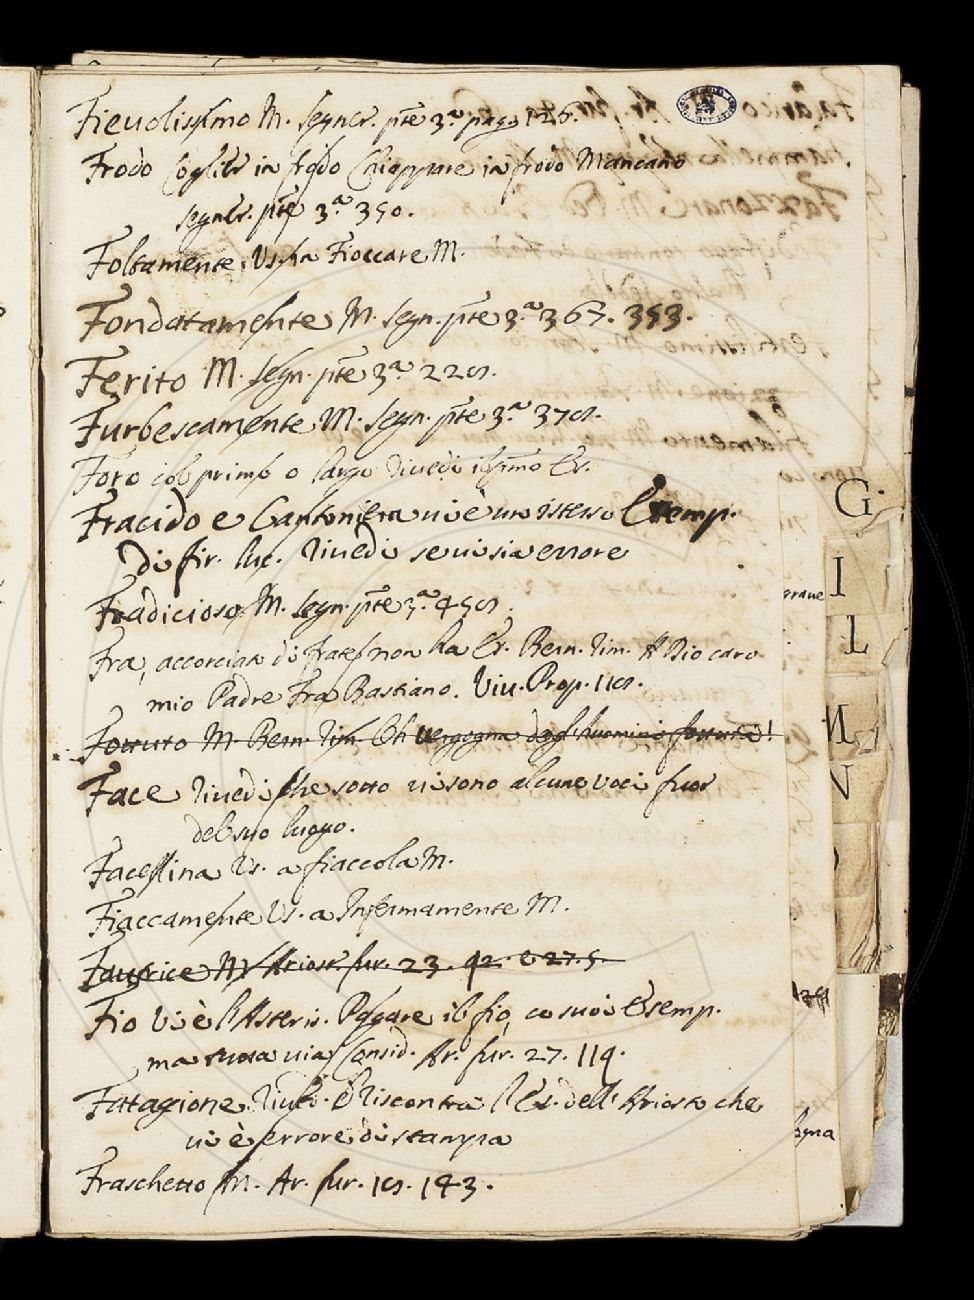 Fievolissimo M. Segner. pte 3.a pag. 126.
Frodo Cogliere in frodo Chiappare in frodo Mancano
Segner. pte 3.a 350.
Foltamente Us. in Fioccare M.
Fondatamente M. Segn. pte 3.a 367. 353.
Ferito M. Segn. pte 3.a
Furbescamente M. Segn. pte 3.a
Foro col primo o largo Rivedi il Es.
Fracido e vi è un istesso Esemp.
di fir. luc. Rivedi se vi sia errore
Fradicioso M. Segn. pte 3.a
Fra, accorciato di frate non ha Es. Bern. rim. A Dio caro
mio Padre Fra Bastiano. Viv. Prop.
Fottuto M. Bern. rim. Oh vergogna degl'huomini fottuta!
Face Rivedi che sotto vi sono alcune voci fuor
del suo luogo.
Facellina Us. a fiaccola M.
Fiaccamente Us. a Infermamente M.
Fautrice M. Ariost. fur. 23. 92. e 27. 5.
Fio Vi è l'Asteris. Pagare il fio, ca suoi Esemp.
ma via Consid. Ar. fur. 27. 119.
Fatagione Rived. e Riscontra l'Es. dell'Ariosto che
vi è errore di stampa
Fraschetto M. Ar. fur. 143.
G
I
L
M
N